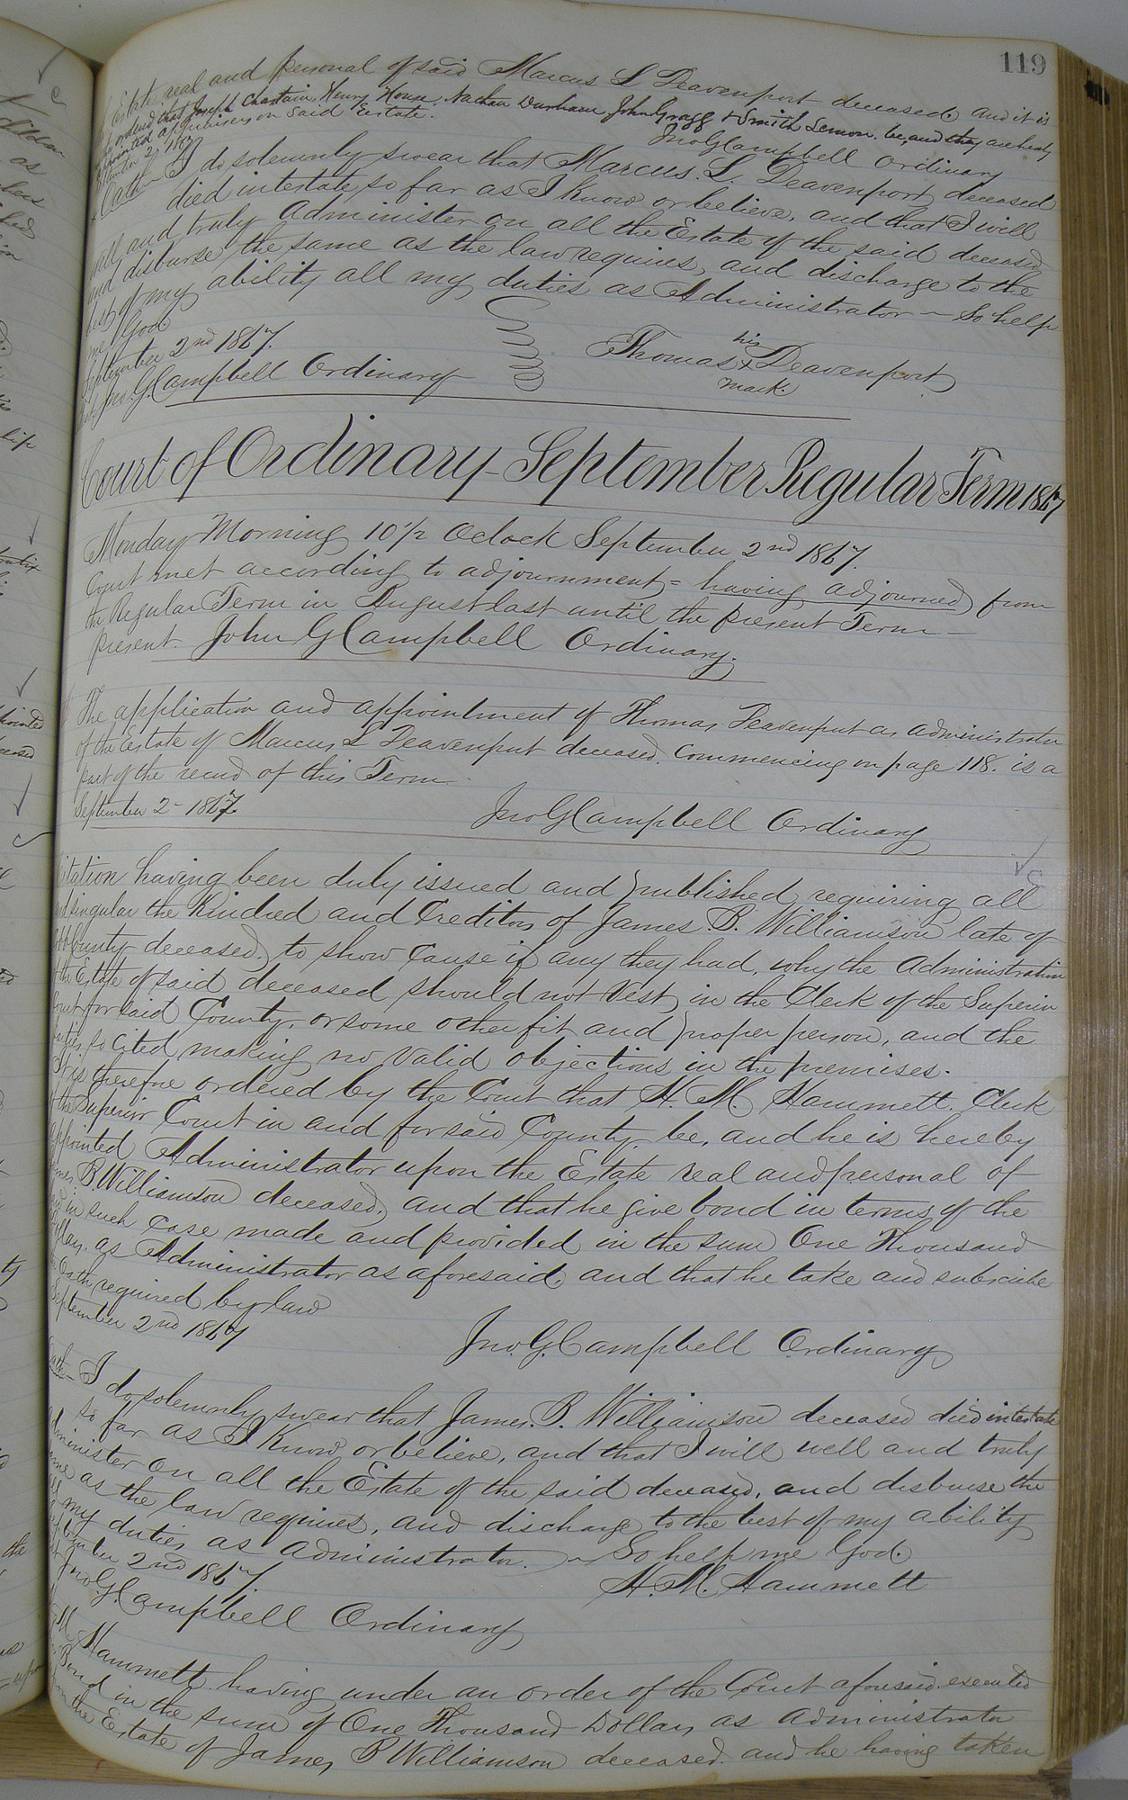 119
Estate real and personal of said Marcus L Deavenport deceased. And it is
ordered that Joseph Chastain, Henry House, Nathan Durham, John Gragg & Smith Lemon. be, and they are hereby
appointed appraisers on said Estate.
September 2, 1867 Jno G Campbell Ordinary
Oath — I do solemnly swear that Marcus. L. Deavenport, deceased
died intestate, so far as I know or believe, and that I will
well, and truly Administer on all the Estate of the said deceased,
and disburse the same as the law requires, and discharge to the
best of my ability all my duties as Administrator — So help
me God.
September 2nd 1867. Thomas his X mark Deavenport
Jno. G. Campbell Ordinary
Court of Ordinary - September Regular Term 1867
Monday Morning 10 1/2 Oclock September 2nd 1867.
Court met according to adjournment, = having adjourned, from
the Regular Term in August last until the present Term —
present. John G Campbell Ordinary.
The application and appointment of Thomas Deavenport as administrator
of the Estate of Marcus L Deavenport deceased. Commencing on page 118. is a
part of the record of this Term
September 2 - 1867. Jno G Campbell Ordinary
Citation having been duly issued and published requiring all
and singular the Kindred and Creditors of James. B. Williamson late of
County deceased, to show cause if any they had, why the Administration
of the Estate of said deceased should not Vest, in the Clerk of the Superior
Court for said County, or some other fit and proper person, and the
parties, so cited making no valid objections in the premises.
It is therefore ordered by the Court that H. M. Hammett. Clerk
of the Superior Court in and for said County, be, and he is hereby
appointed Administrator upon the Estate real and personal of
James B. Williamson deceased, and that he give bond in terms of the
law in such case made and provided in the sum One Thousand
Dollars, as Administrator as aforesaid, and that he take and subscribe
the Oath required by law
September 2nd 1867 Jno. G. Campbell Ordinary
Oath — I do solemnly swear that James. B. Williamson deceased died intestate
so far as I know or believe, and that I will well and truly
administer on all the Estate of the said deceased, and disburse the
same as the law requires, and discharge to the best of my ability
all my duties as administrator. — So help me God.
September 2nd 1867. H. M. Hammett
Jno. G. Campbell Ordinary
H M Hammett having under an order of the Court aforesaid, executed
Bond in the sum of One Thousand Dollars as administrator
upon the Estate of James B Williamson deceased. and he having taken